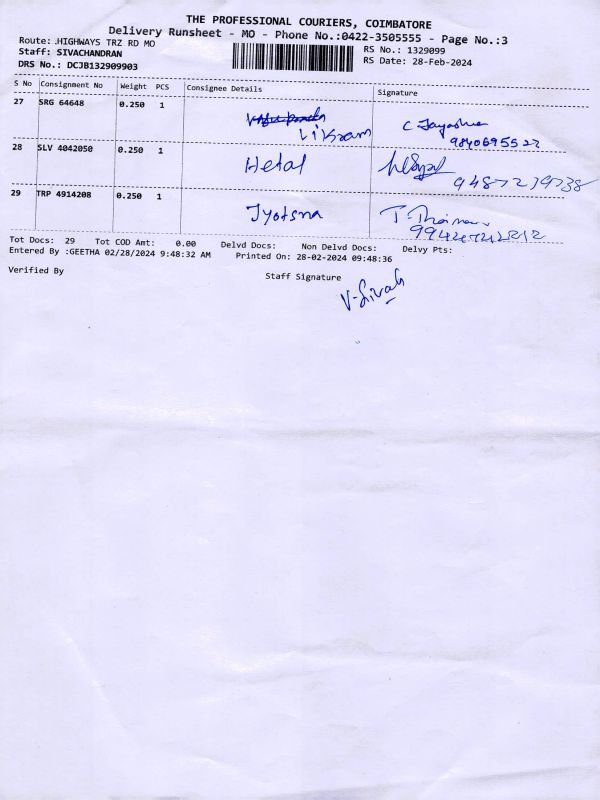 THE PROFESSIONAL COURIERS, COIMBATORE
Delivery Runsheet - MO - Phone No.:0422-3505555 - Page No.:3
Route: .HIGHWAYS TRZ RD MO
RS No.: 1329099
Staff: SIVACHANDRAN
RS Date: 28-Feb-2024
DRS No.: DCJB132909903
S No Consignment No Weight PCS Consignee Details Signature
27 SRG 64648 0.250 1
Likram C Jayashree
9840695522
28 SLV 4042050 0.250 1 Hetal
9487239738
29 TRP 4914208 0.250 1 Jyotsna T.
Tot Docs: 29 Tot COD Amt: 0.00 Delvd Docs: Non Delvd Docs: Delvy Pts:
Entered By :GEETHA 02/28/2024 9:48:32 AM Printed On: 28-02-2024 09:48:36
Verified By Staff Signature
V-Sivah